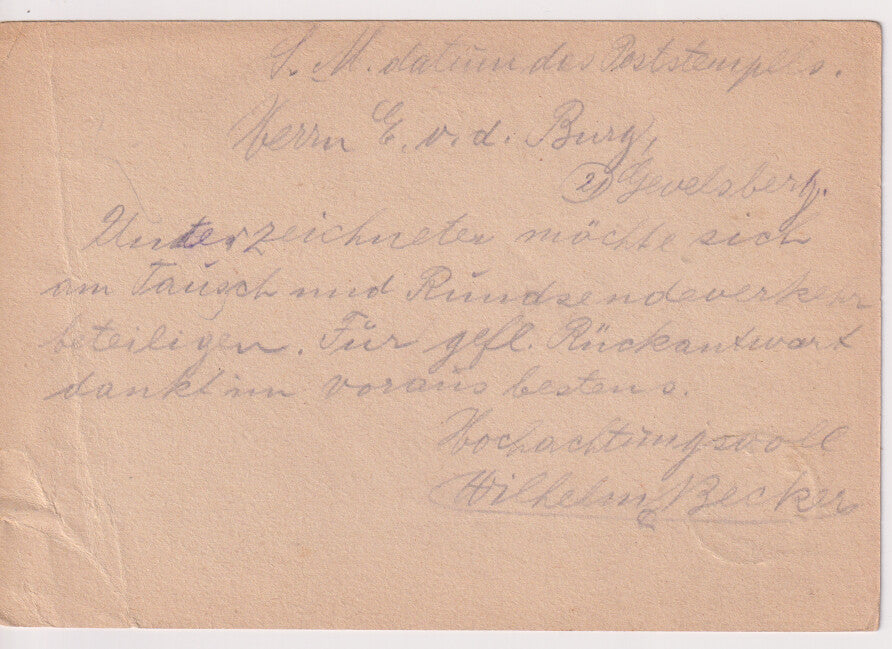 S. M. datum des Poststempels.
Herrn E. v. d. Burg,
(21) Gevelsberg.
Unterzeichneter möchte sich
am Tausch und Rundsendeverkehr
beteiligen. Für gefl. Rückantwort
dankt im voraus bestens.
Hochachtungsvoll
Wilhelm Becker